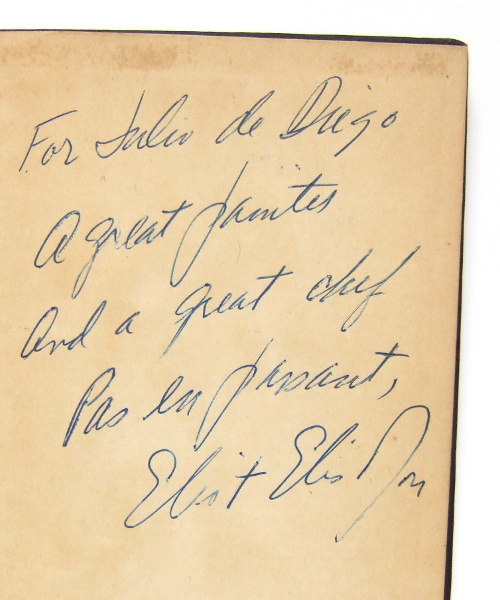 For Julio de Diego
A great painter
And a great chef
Pas en passant,
Eliot Elisofon